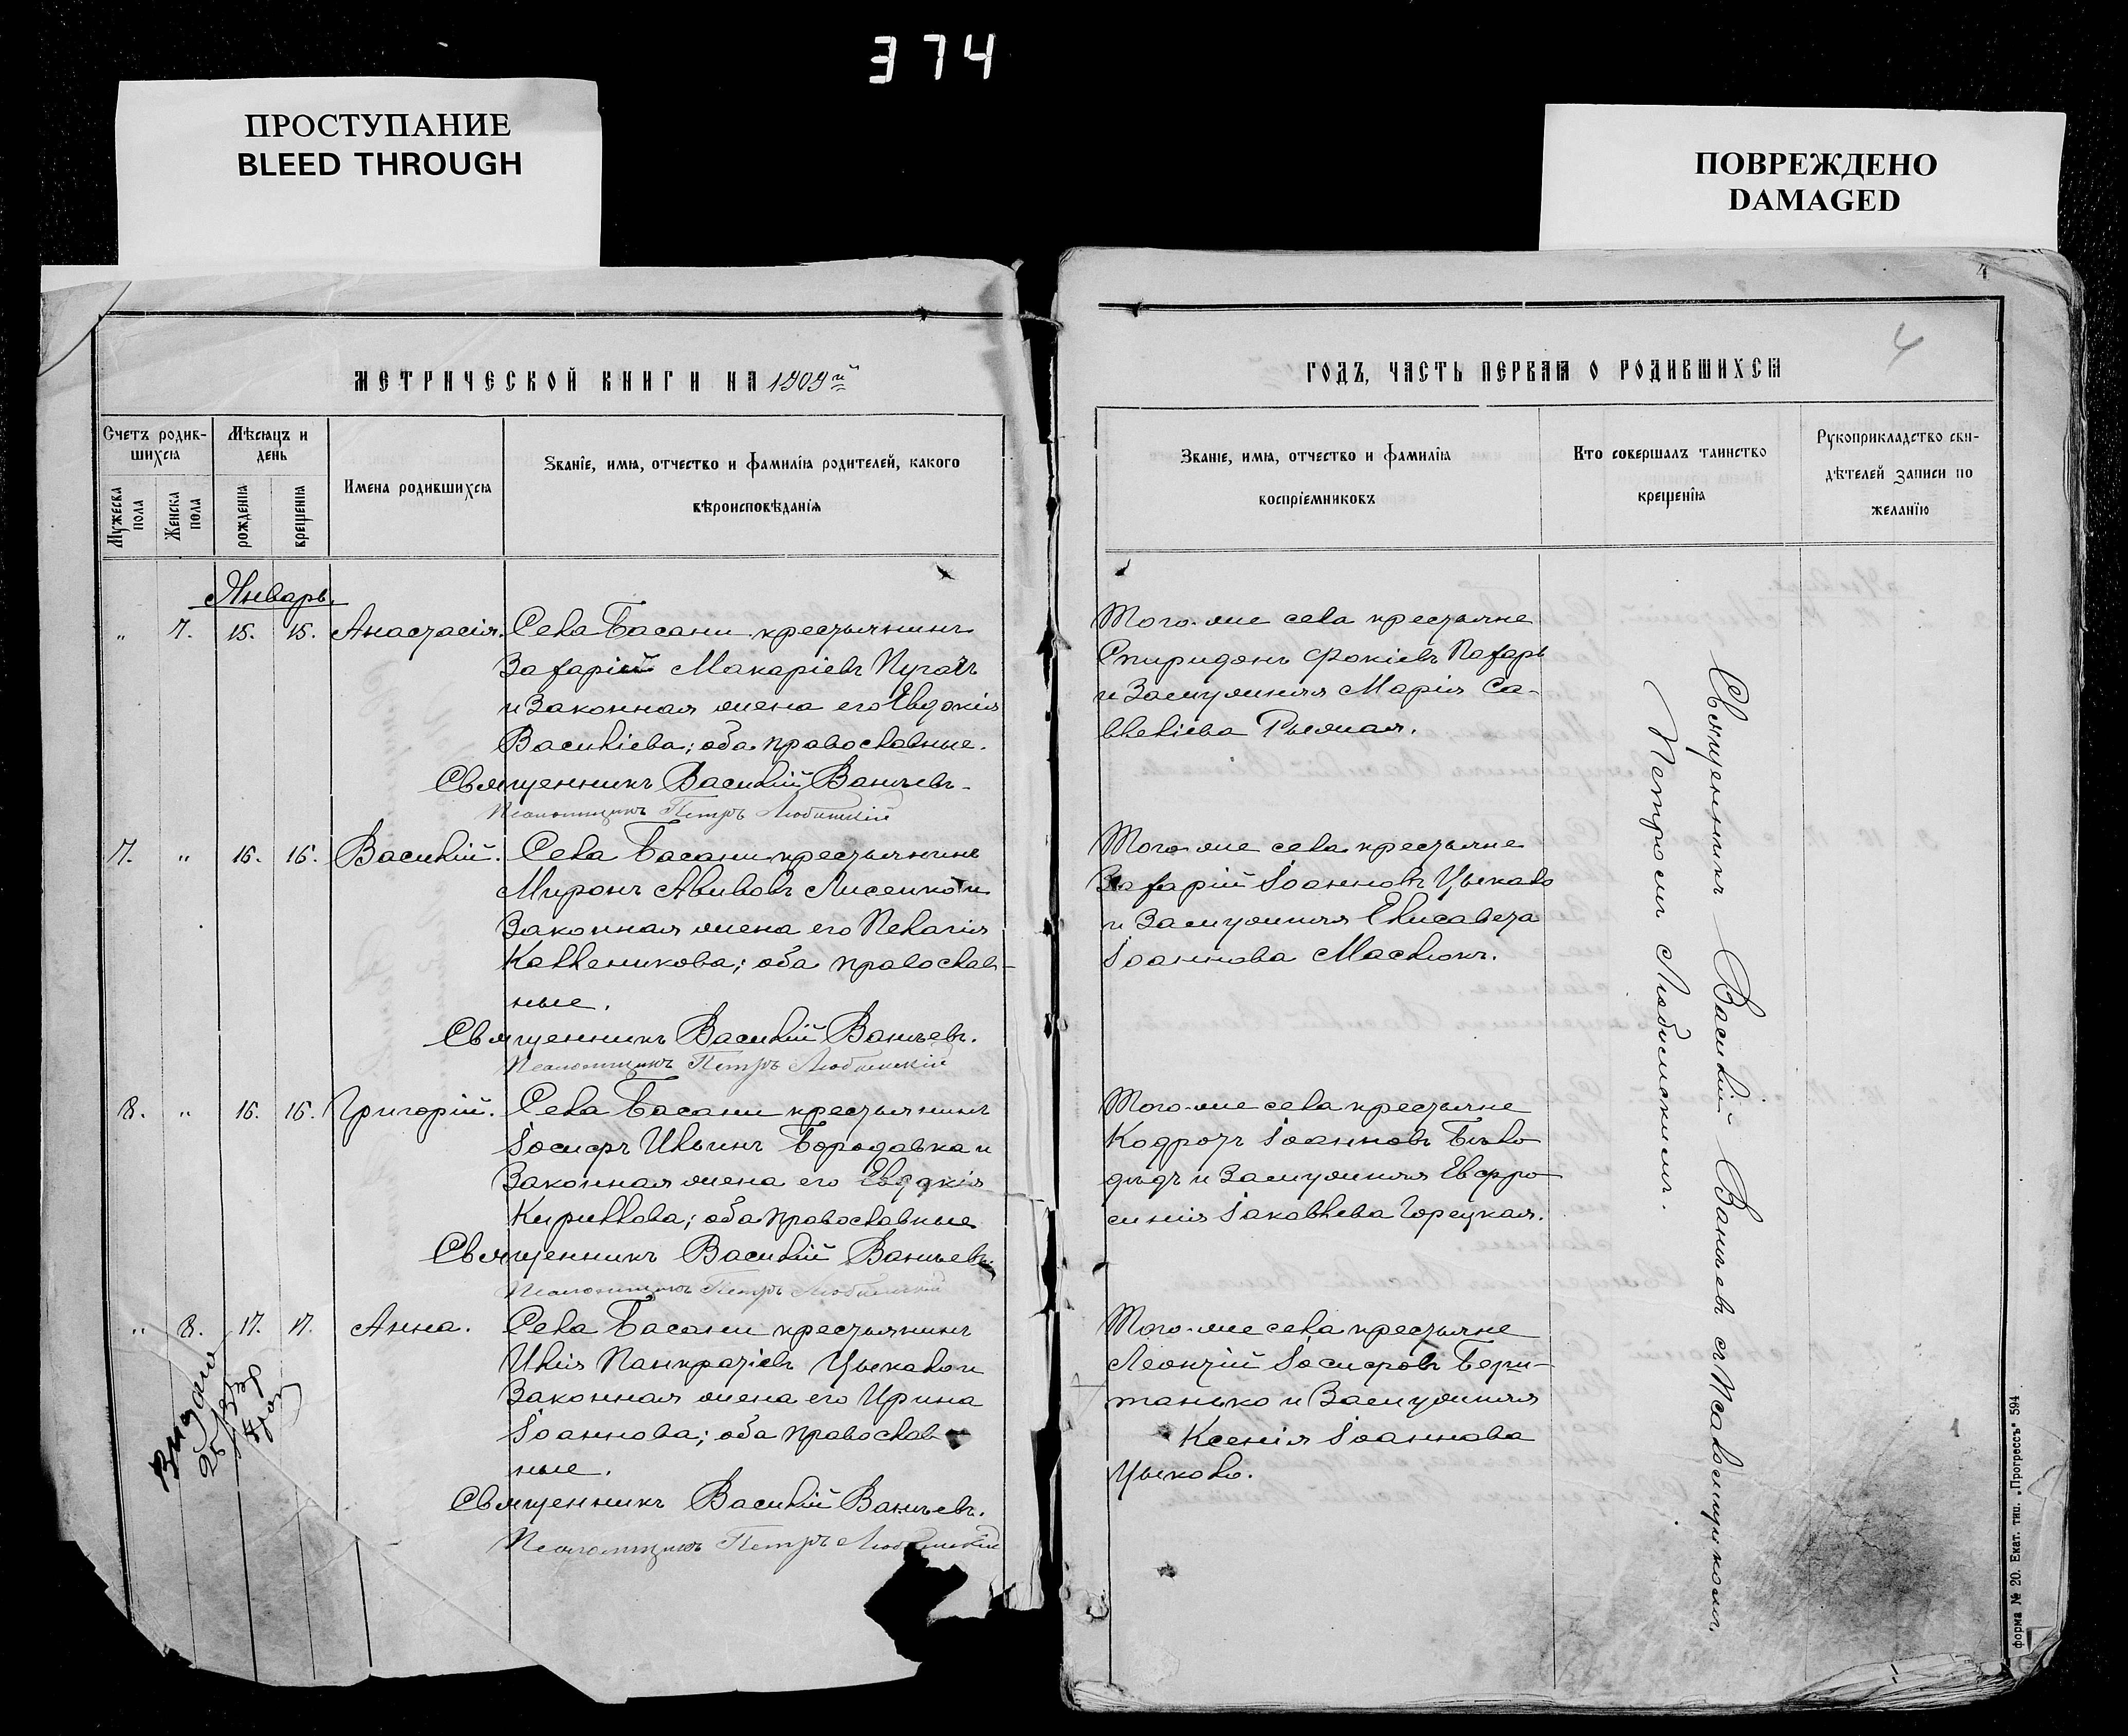 374
ПРОСТУПАНИЕ
BLEED THROUGH
ПОВРЕЖДЕНО
DAMAGED
МЕТРИЧЕСКОЙ КНИГИ НА 1909й
Счетъ родив-
шихся
Мужеска пола
Женска пола
Мѣсяцъ и
день
рожденія
крещенія
Имена родившихся
Званіе, имя, отчество и фамилія родителей, какого
вѣроисповѣданія
Январь.
„ 7. 15. 15. Анастасія. Села Басани крестьянинъ
Захарій Макаріевъ Пугачъ
и законная жена его Евдокія
Василіева; оба православные.
Священникъ Василій Ваньевъ.
Псаломщикъ Петръ
7. „ 16. 16. Василій. Села Басани крестьянинъ
Миронъ Авивовъ Лисенко и
законная жена его Пелагія
Каллиникова; оба православ-
ные.
Священникъ Василій Ваньевъ.
Псаломщикъ Петръ
8. „ 16. 16. Григорій. Села Басани крестьянинъ
Іосифъ Ильинъ Бородавка и
законная жена его Евдокія
Кириллова; оба православные
Священникъ Василій Ваньевъ.
Псаломщикъ Петръ
„ 8. 17. 17. Анна. Села Басани крестьянинъ
Илія Панкратіевъ Цыкало и
законная жена его Ирина
Іоаннова; оба православ-
ные.
Священникъ Василій Ваньевъ.
Псаломщикъ Петръ
4
4
ГОДЪ, ЧАСТЬ ПЕРВАЯ О РОДИВШИХСЯ
Званіе, имя, отчество и фамилія
воспріемниковъ
Кто совершалъ таинство
крещенія
Рукоприкладство сви-
дѣтелей записи по
желанію
Того-же села крестьяне
Спиридонъ Фокіевъ Похарь
и замужняя Марія Са-
велліева Рыжая.
Того-же села крестьяне
Захарій Іоанновъ Цыкало
и замужняя Елисавета
Іоаннова Маслюкъ.
Того-же села крестьяне
Кодротъ Іоанновъ Бѣло-
дѣдъ и замужняя Евфро-
синія Іаковлева Горецкая.
Того-же села крестьяне
Леонтій Іосифовъ
и замужняя
Ксенія Іоаннова
Цыкало.
Священникъ Василій Ваньевъ съ Псаломщикомъ
Петромъ
форма № 20. Екат. тип. „Прогрессъ" 594